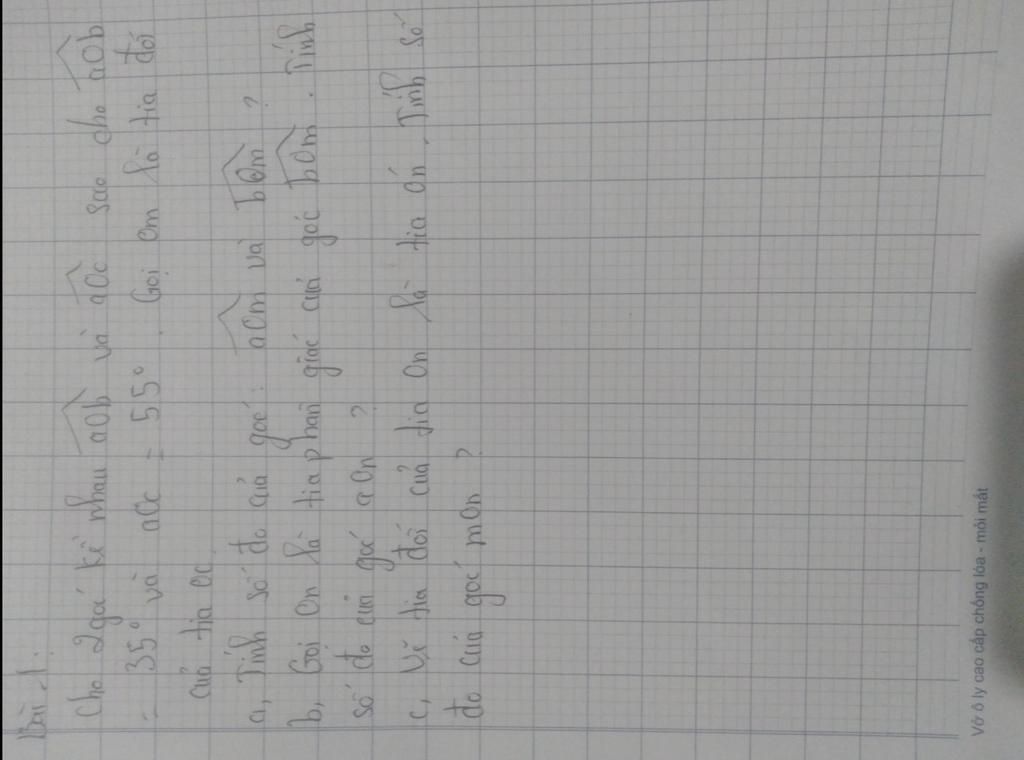 Bài 1:
Cho 2 goć kề nhau aOb và aOc sao cho aOb
= 35° và aOc = 55°. Gọi om là tia đối
của tia oc.
a, Tính số đo của goć: aOm và bOm ?
b, Gọi On là tia phân giác của goć bOm. Tính
số đo của goć aOn ?
c, Vẽ tia đối của tia On là tia ón. Tính số
đo của goć mOn ?
Vở ô ly cao cấp chống lóa - mỏi mắt